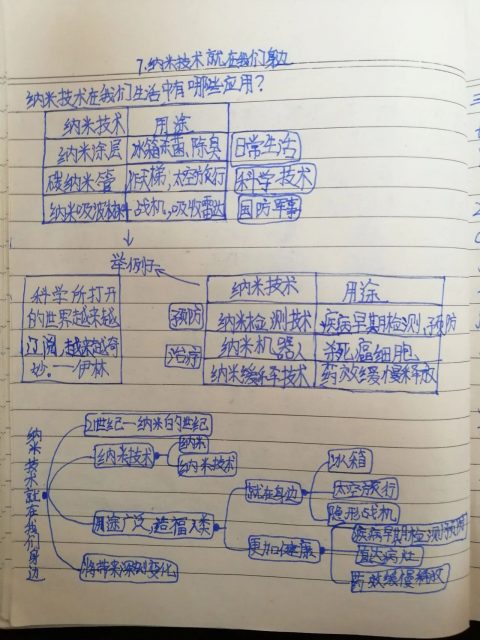 7.纳米技术就在我们身边
纳米技术在我们生活中有哪些应用?
纳米技术 用途
纳米涂层 冰箱杀菌、除臭 日常生活
碳纳米管 天梯,太空旅行 科学技术
纳米吸波材料 战机,吸收雷达 国防军事
举例子
纳米技术 用途
预防 纳米检测技术 疾病早期检测、预防
治疗 纳米机器人 杀死癌细胞
纳米缓释技术 药效缓慢释放
科学所打开
的世界越来越
辽阔,越来越奇
妙。——伊林
纳米技术就在我们身边
21世纪—纳米的世纪
纳米技术
纳米
纳米技术
用途广泛,造福人类
就在身边
冰箱
太空旅行
隐形战机
更加健康
疾病早期检测预防
直达病灶
药效缓慢释放
将带来深刻变化